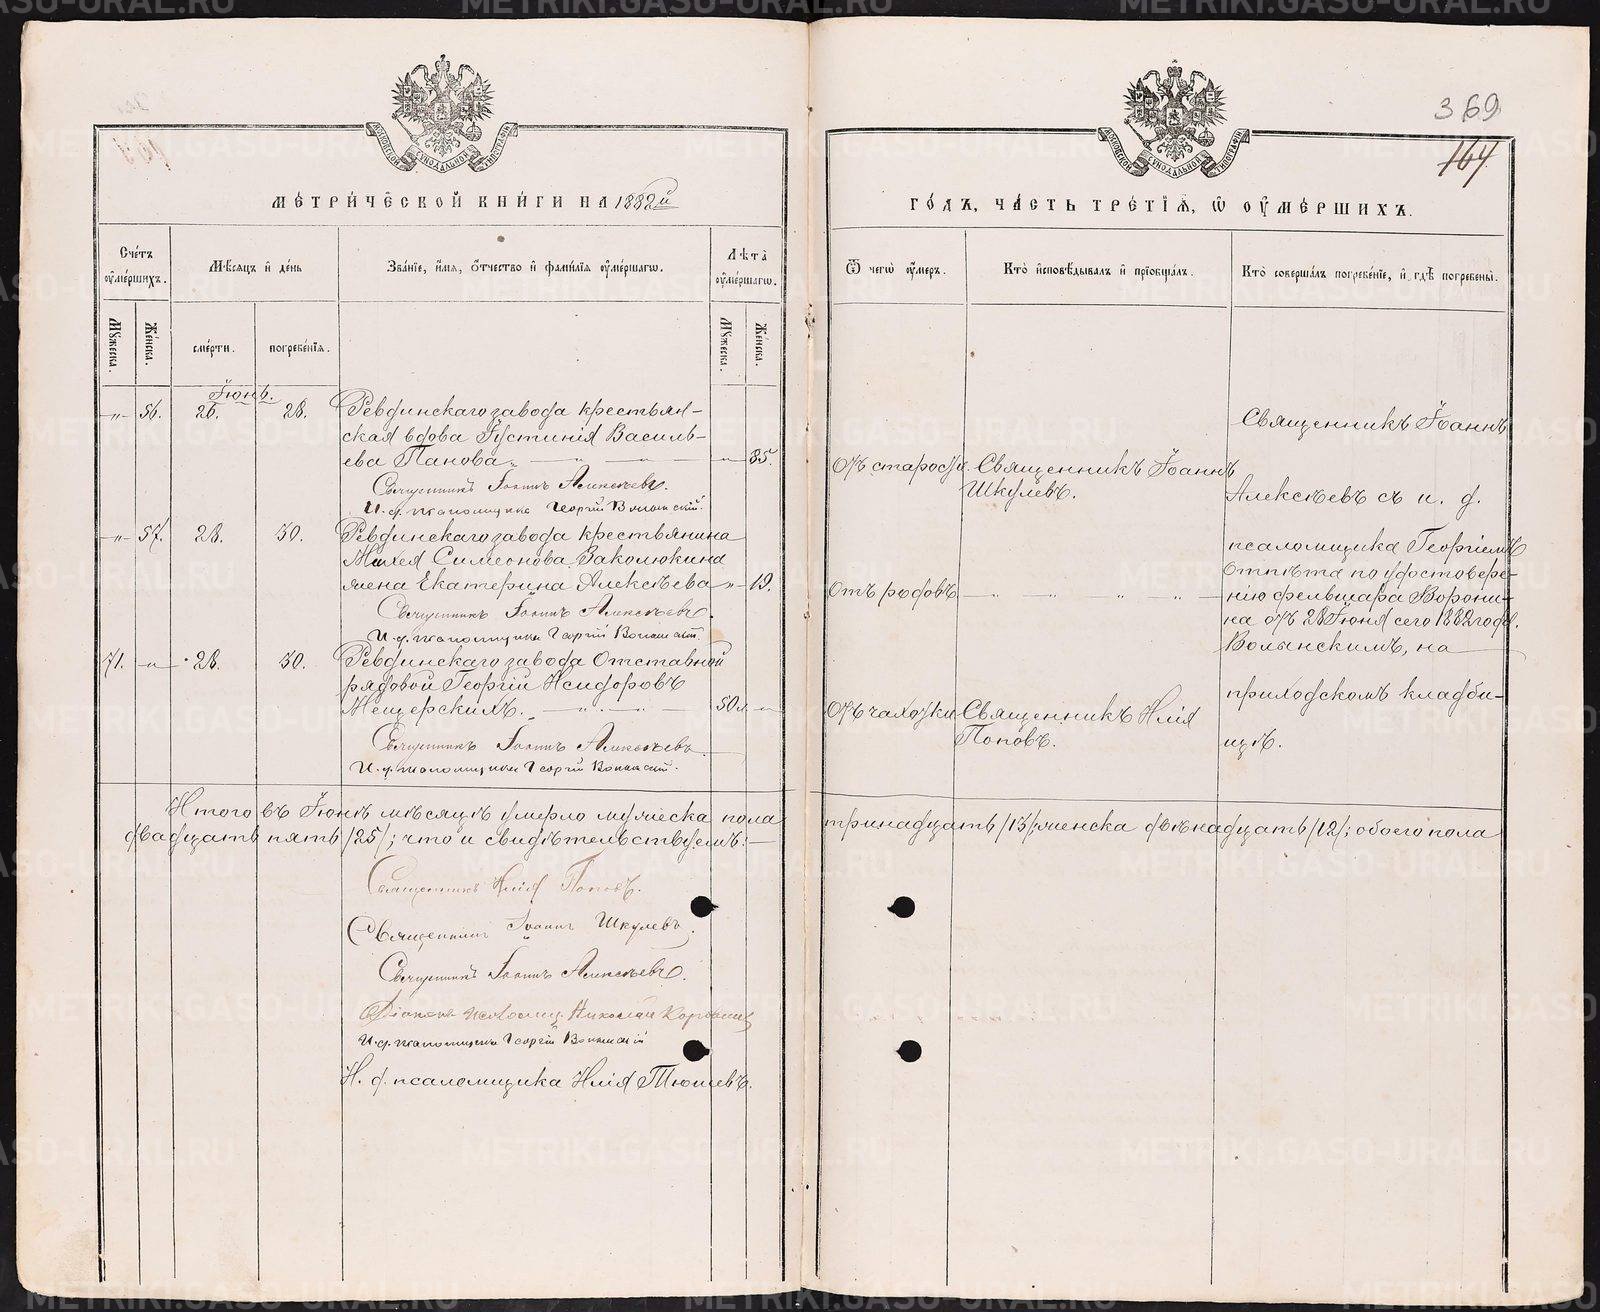 369
164
МОСКОВСКОЙ СУНОДАЛЬНОЙ ТИПОГРАФІИ
МОСКОВСКОЙ СУНОДАЛЬНОЙ ТИПОГРАФІИ
МЕТРИ́ЧЕСКОЙ КНИ́ГИ НА 1882й
ГО́ДЪ, ЧА́СТЬ ТРЕ́ТІѦ, Ѡ ОУ҆МЕ́РШИХЪ.
Сче́тъ оу҆ме́ршихъ.
Мꙋ́жеска.
Же́нска.
Мѣ́сяцъ и҆ де́нь
сме́рти.
погребе́нїѧ.
Зва́нїе, и҆́мѧ, ѻ҆́тчество и҆ фами́лїѧ оу҆ме́ршагѡ.
Лѣ́та оу҆ме́ршагѡ.
Мꙋ́жеска.
Же́нска.
Ѿ чегѡ̀ оу҆́меръ.
Кто̀ и҆сповѣ́дывалъ и҆ прїѡбща́лъ.
Кто̀ соверша́лъ погребе́нїе, и҆ гдѣ̀ погребены̀.
Іюнь.
-"- 56. 26. 28. Ревдинскаго завода крестьян-
ская вдова Іустинія Василь-
ева Панова " — " — " — " — 85.
Священникъ Іоаннъ Алексѣевъ.
И. д. псаломщика Георгій Волынскій.
Отъ старости. Священникъ Іоаннъ
Шкулевъ.
Священникъ Іоаннъ
Алексѣевъ съ и. д.
-"- 57. 28. 30. Ревдинскаго завода крестьянина
Михея Симеонова Заколюкина
жена Екатерина Алексѣева — " — 19.
Священникъ Іоаннъ Алексѣевъ.
И. д. псаломщика Георгій Волынскій.
Отъ родовъ — " — " — " — " —
псаломщика Георгіемъ
Отпѣта по удостовере-
нію фельшара Ворони-
на отъ 28 Іюня сего 1882 года.
Волынскимъ, на
71. -"- 28. 30. Ревдинскаго завода Отставной
рядовой Георгій Исидоровъ
Мещерскихъ. — " — " — 50. — " —
Священникъ Іоаннъ Алексѣевъ
И. д. псаломщика Георгій Волынскій.
Отъ чахотки Священникъ Илія
Поповъ.
приходскомъ кладби-
щѣ.
Итого въ Іюнѣ мѣсяцѣ умерло мужеска пола тринадцать /13/; женска двѣнадцать /12/; обоего пола
двадцать пять /25/; что и свидѣтельствуемъ: —
Священникъ Илія Поповъ.
Священникъ Іоаннъ Шкулевъ.
Священникъ Іоаннъ Алексѣевъ.
Діаконъ Николай
И. д. псаломщика Георгій Волынскій
И. д. псаломщика Илія Тюшевъ.
METRIKI.GASO-URAL.RU